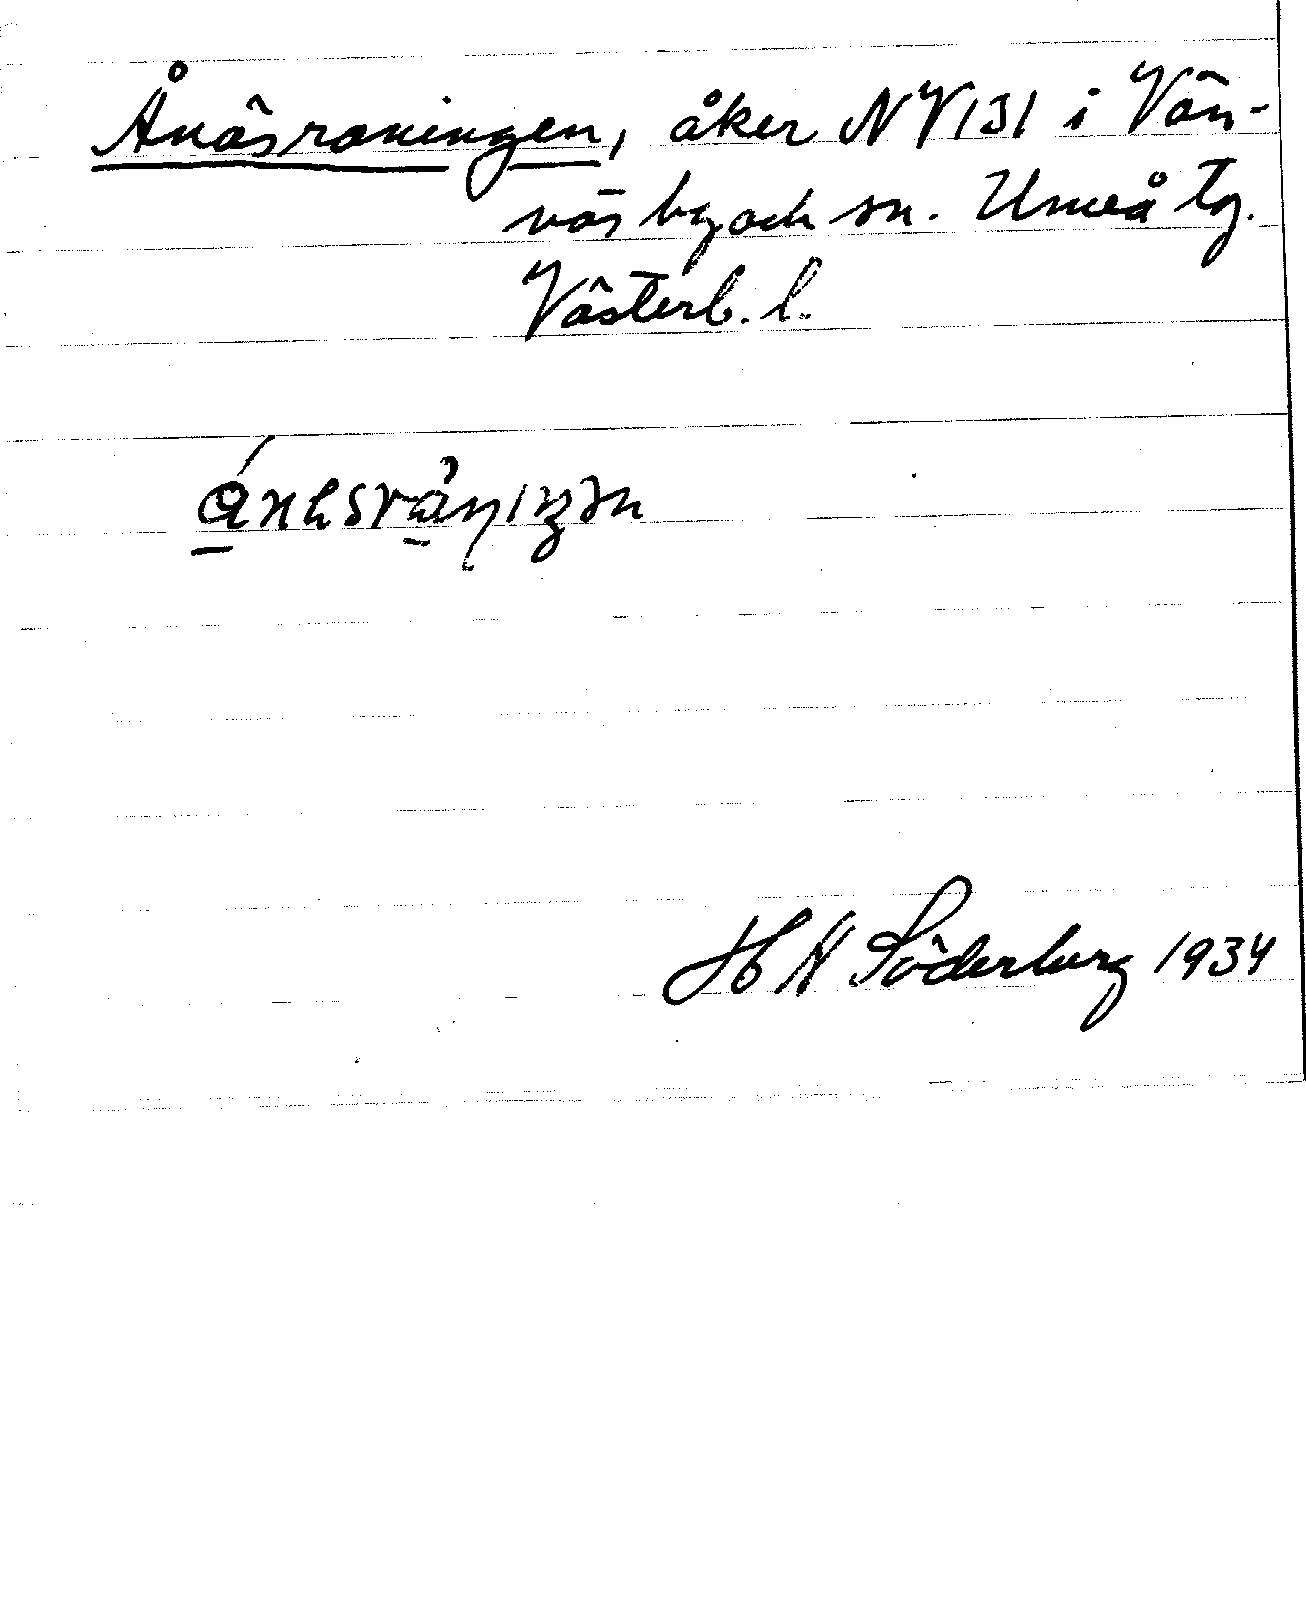 Ånäsraningen, åker NV131 i Vän-
näs by och sn. Umeå tg.
Västerb. l.
H N Söderberg 1934